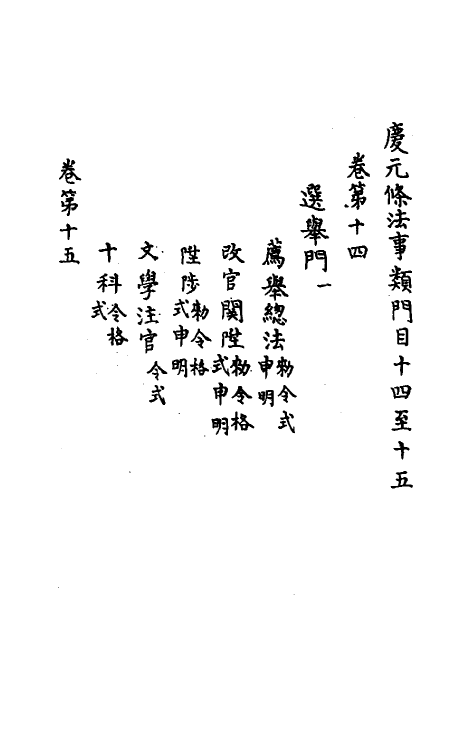 慶元條法事類門目十四至十五
卷第十四
選舉門一
薦舉總法勅令式申明
改官關陞勅令格式申明
陞陟勅令格式申明
文學注官令式
十科令格式
卷第十五